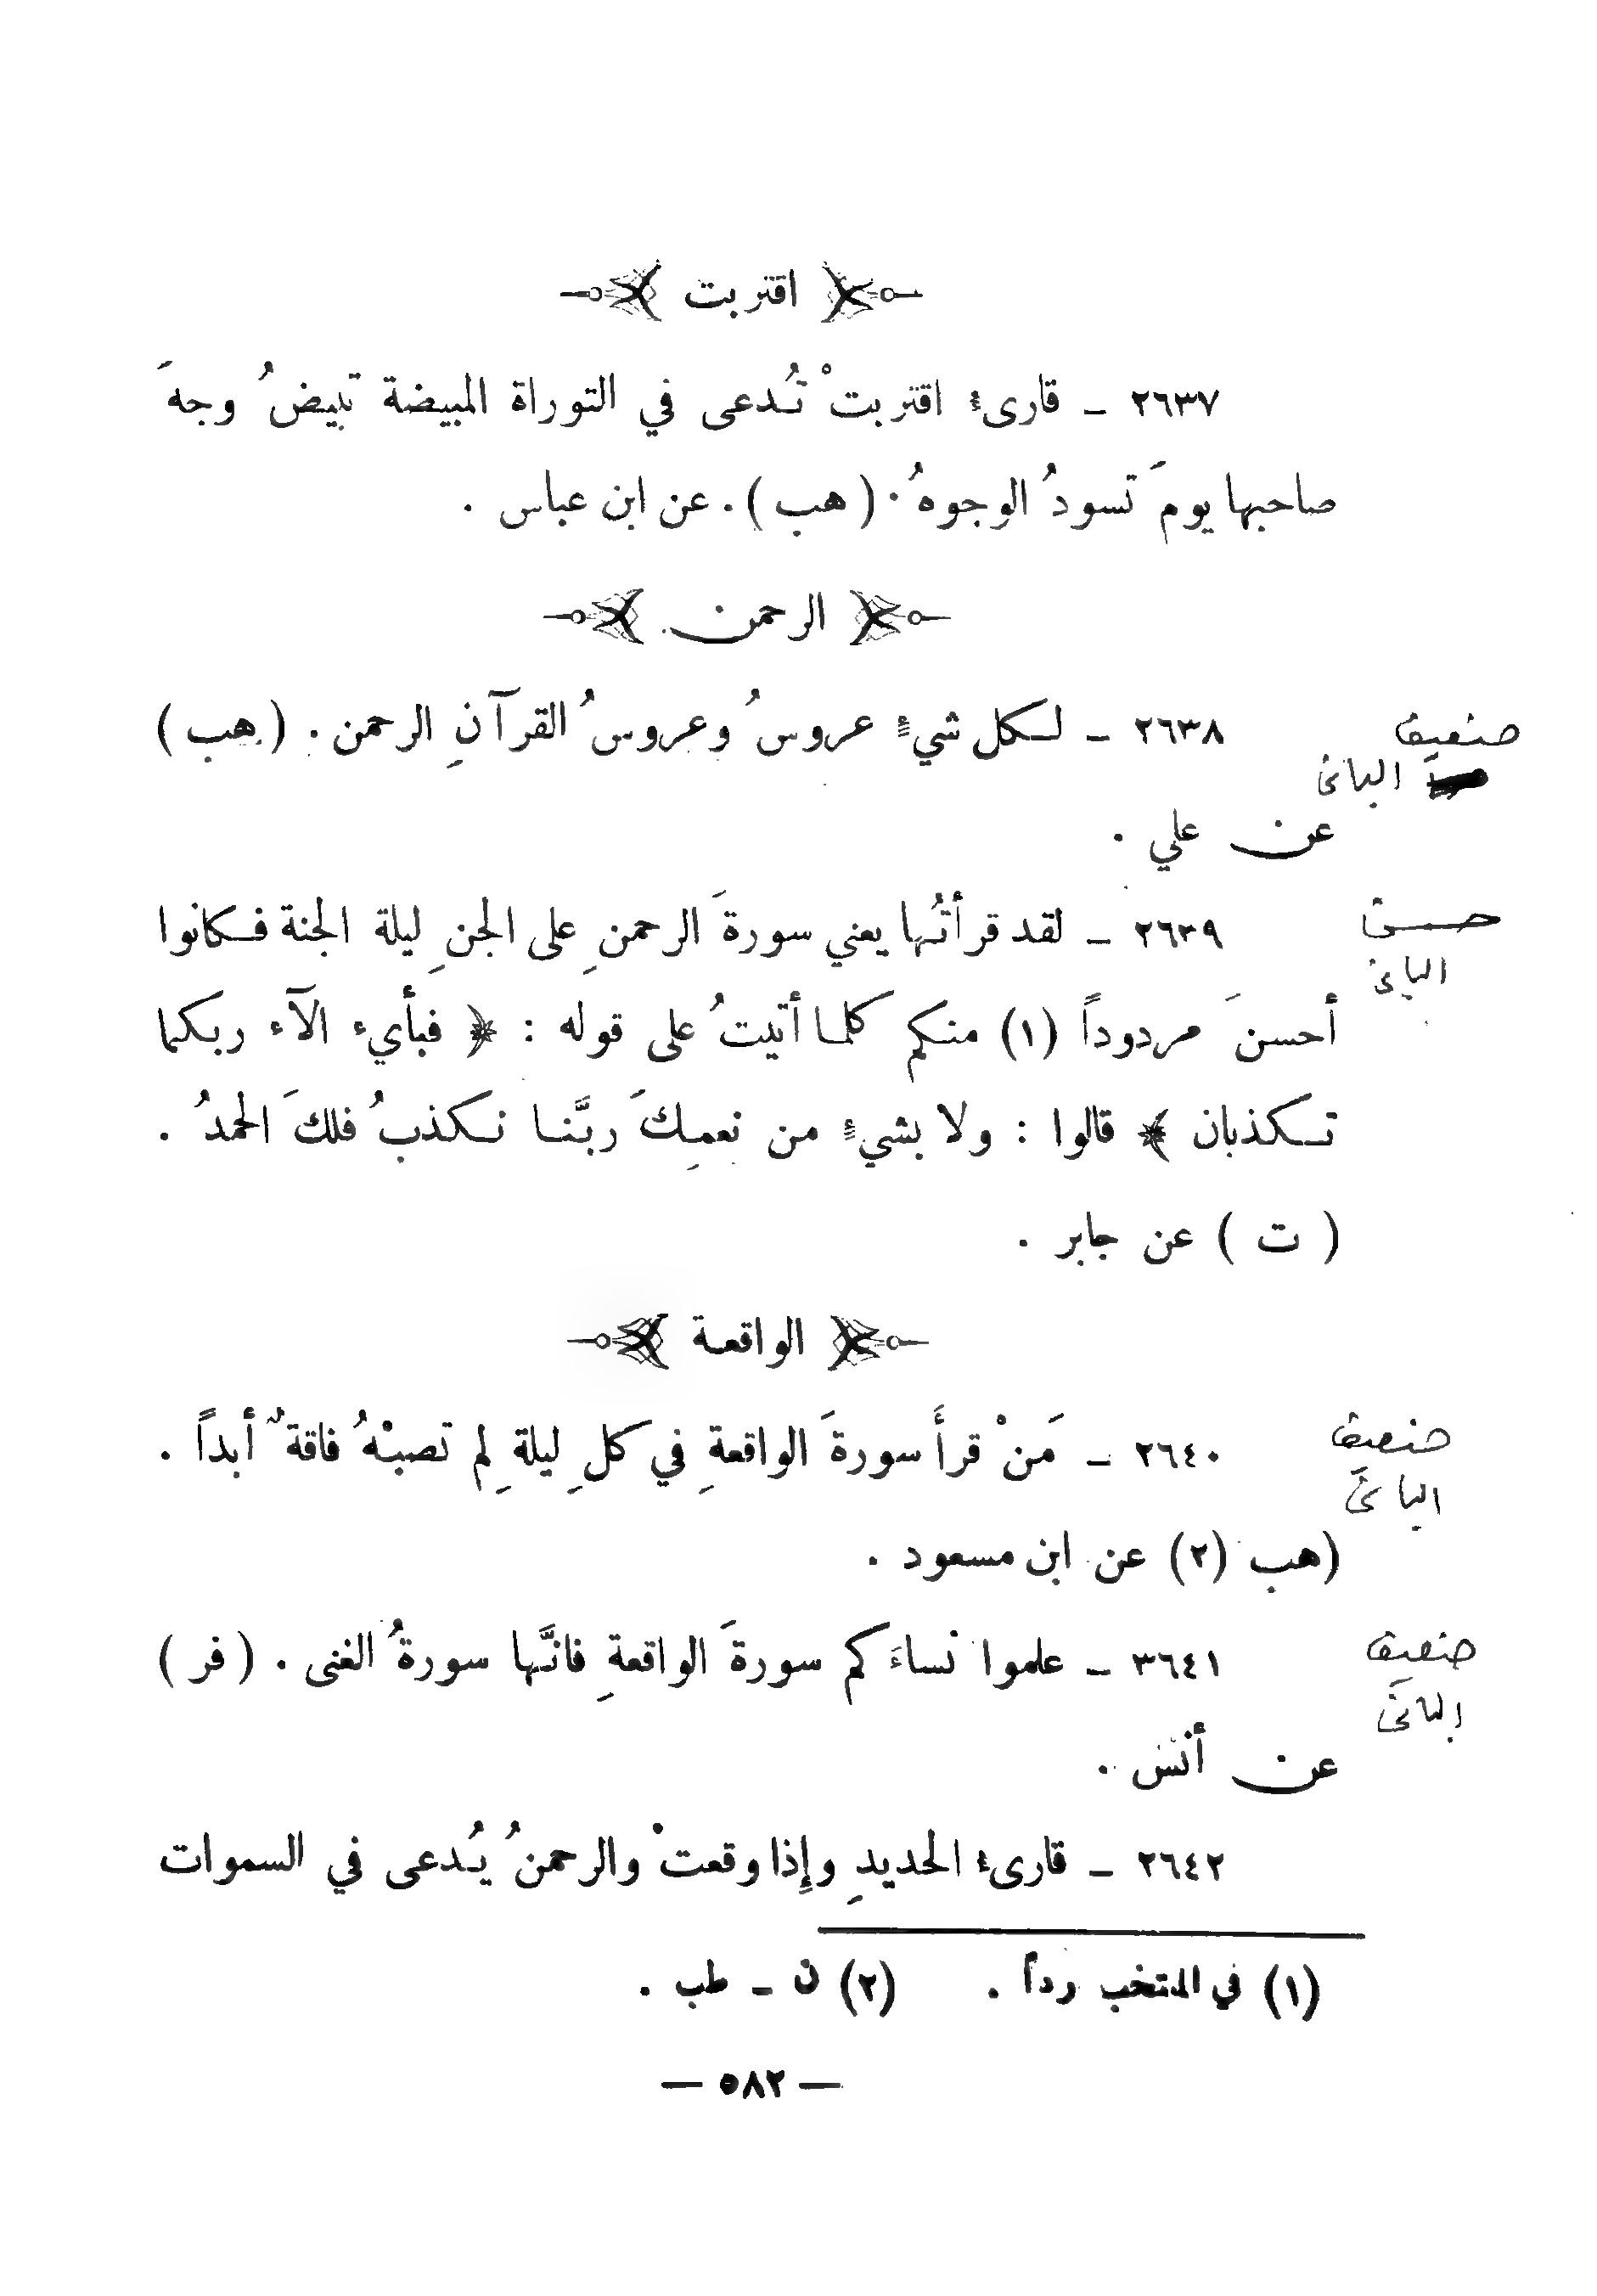 اقتربت
٢٦٣٧ ـ قارىءُ اقتربتْ تُدعى في التوراة المبيضة تبيضُ وجهَ
صاحبها يومَ تسودُ الوجوهُ . ( هب ) . عن ابن عباس .
الرحمن
٢٦٣٨ ـ لكل شيءٍ عروسُ وعروسُ القرآنِ الرحمن . ( هب )
ضعيف
البانى
عن علي .
٢٦٣٩ ـ لقد قرأتُها يعني سورةَ الرحمنِ على الجنِ ليلة الجنة فكانوا
حسن
البانى
أحسنَ مردوداً (١) منكم كلما أتيتُ على قوله : ﴿ فبأيء الآء ربكما
تكذبان ﴾ قالوا : ولا بشيءٍ من نعمِكَ ربَّنا نكذبُ فلكَ الحمدُ .
( ت ) عن جابر .
الواقعة
٢٦٤٠ ـ مَنْ قرأَ سورةَ الواقعةِ في كلِ ليلةِ لم تصبْهُ فاقةٌ أبداً .
ضعيف
البانى
(هب (٢) عن ابن مسعود .
٣٦٤١ ـ علموا نساءَكم سورةَ الواقعةِ فانَّها سورةُ الغنى . ( فر )
ضعيف
البانى
عن أنس .
٢٦٤٢ ـ قارىءُ الحديدِ وإِذا وقعتْ والرحمنُ يُدعى في السموات
(١) في المنتخب رداً . (٢) ن ـ طب .
— ٥٨٢ —